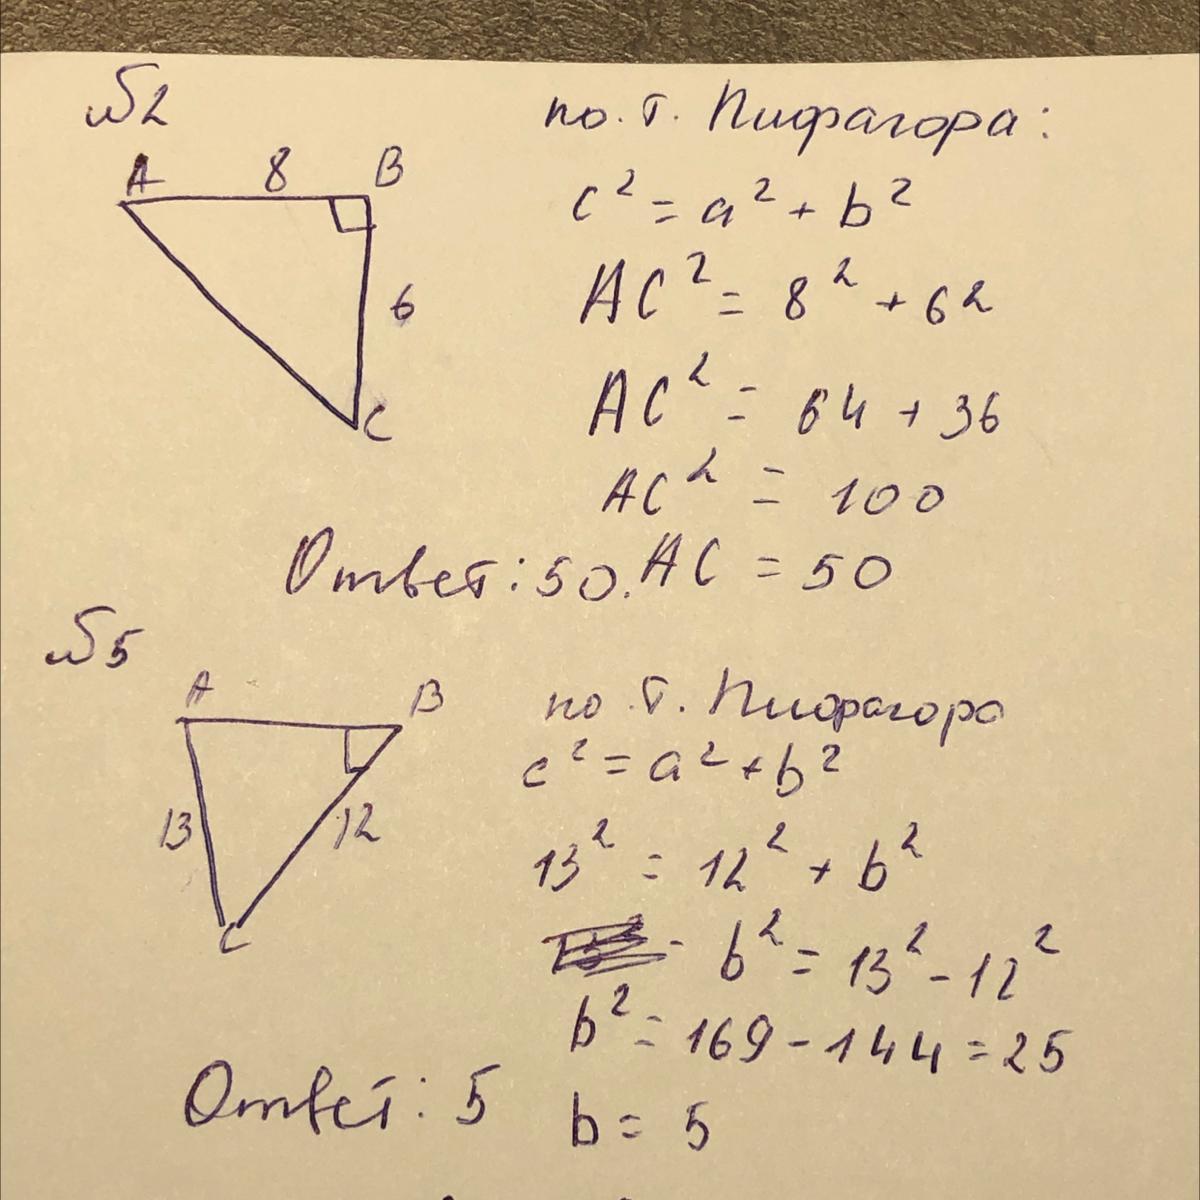 №2
A 8 B
6
C
по. т. Пифагора:
c² = a² + b²
AC² = 8² + 6²
AC² = 64 + 36
AC² = 100
AC = 50
Ответ: 50.
№5
A B
13 12
C
по. т. Пифагора
c² = a² + b²
13² = 12² + b²
b² = 13² - 12²
b² = 169 - 144 = 25
b = 5
Ответ: 5